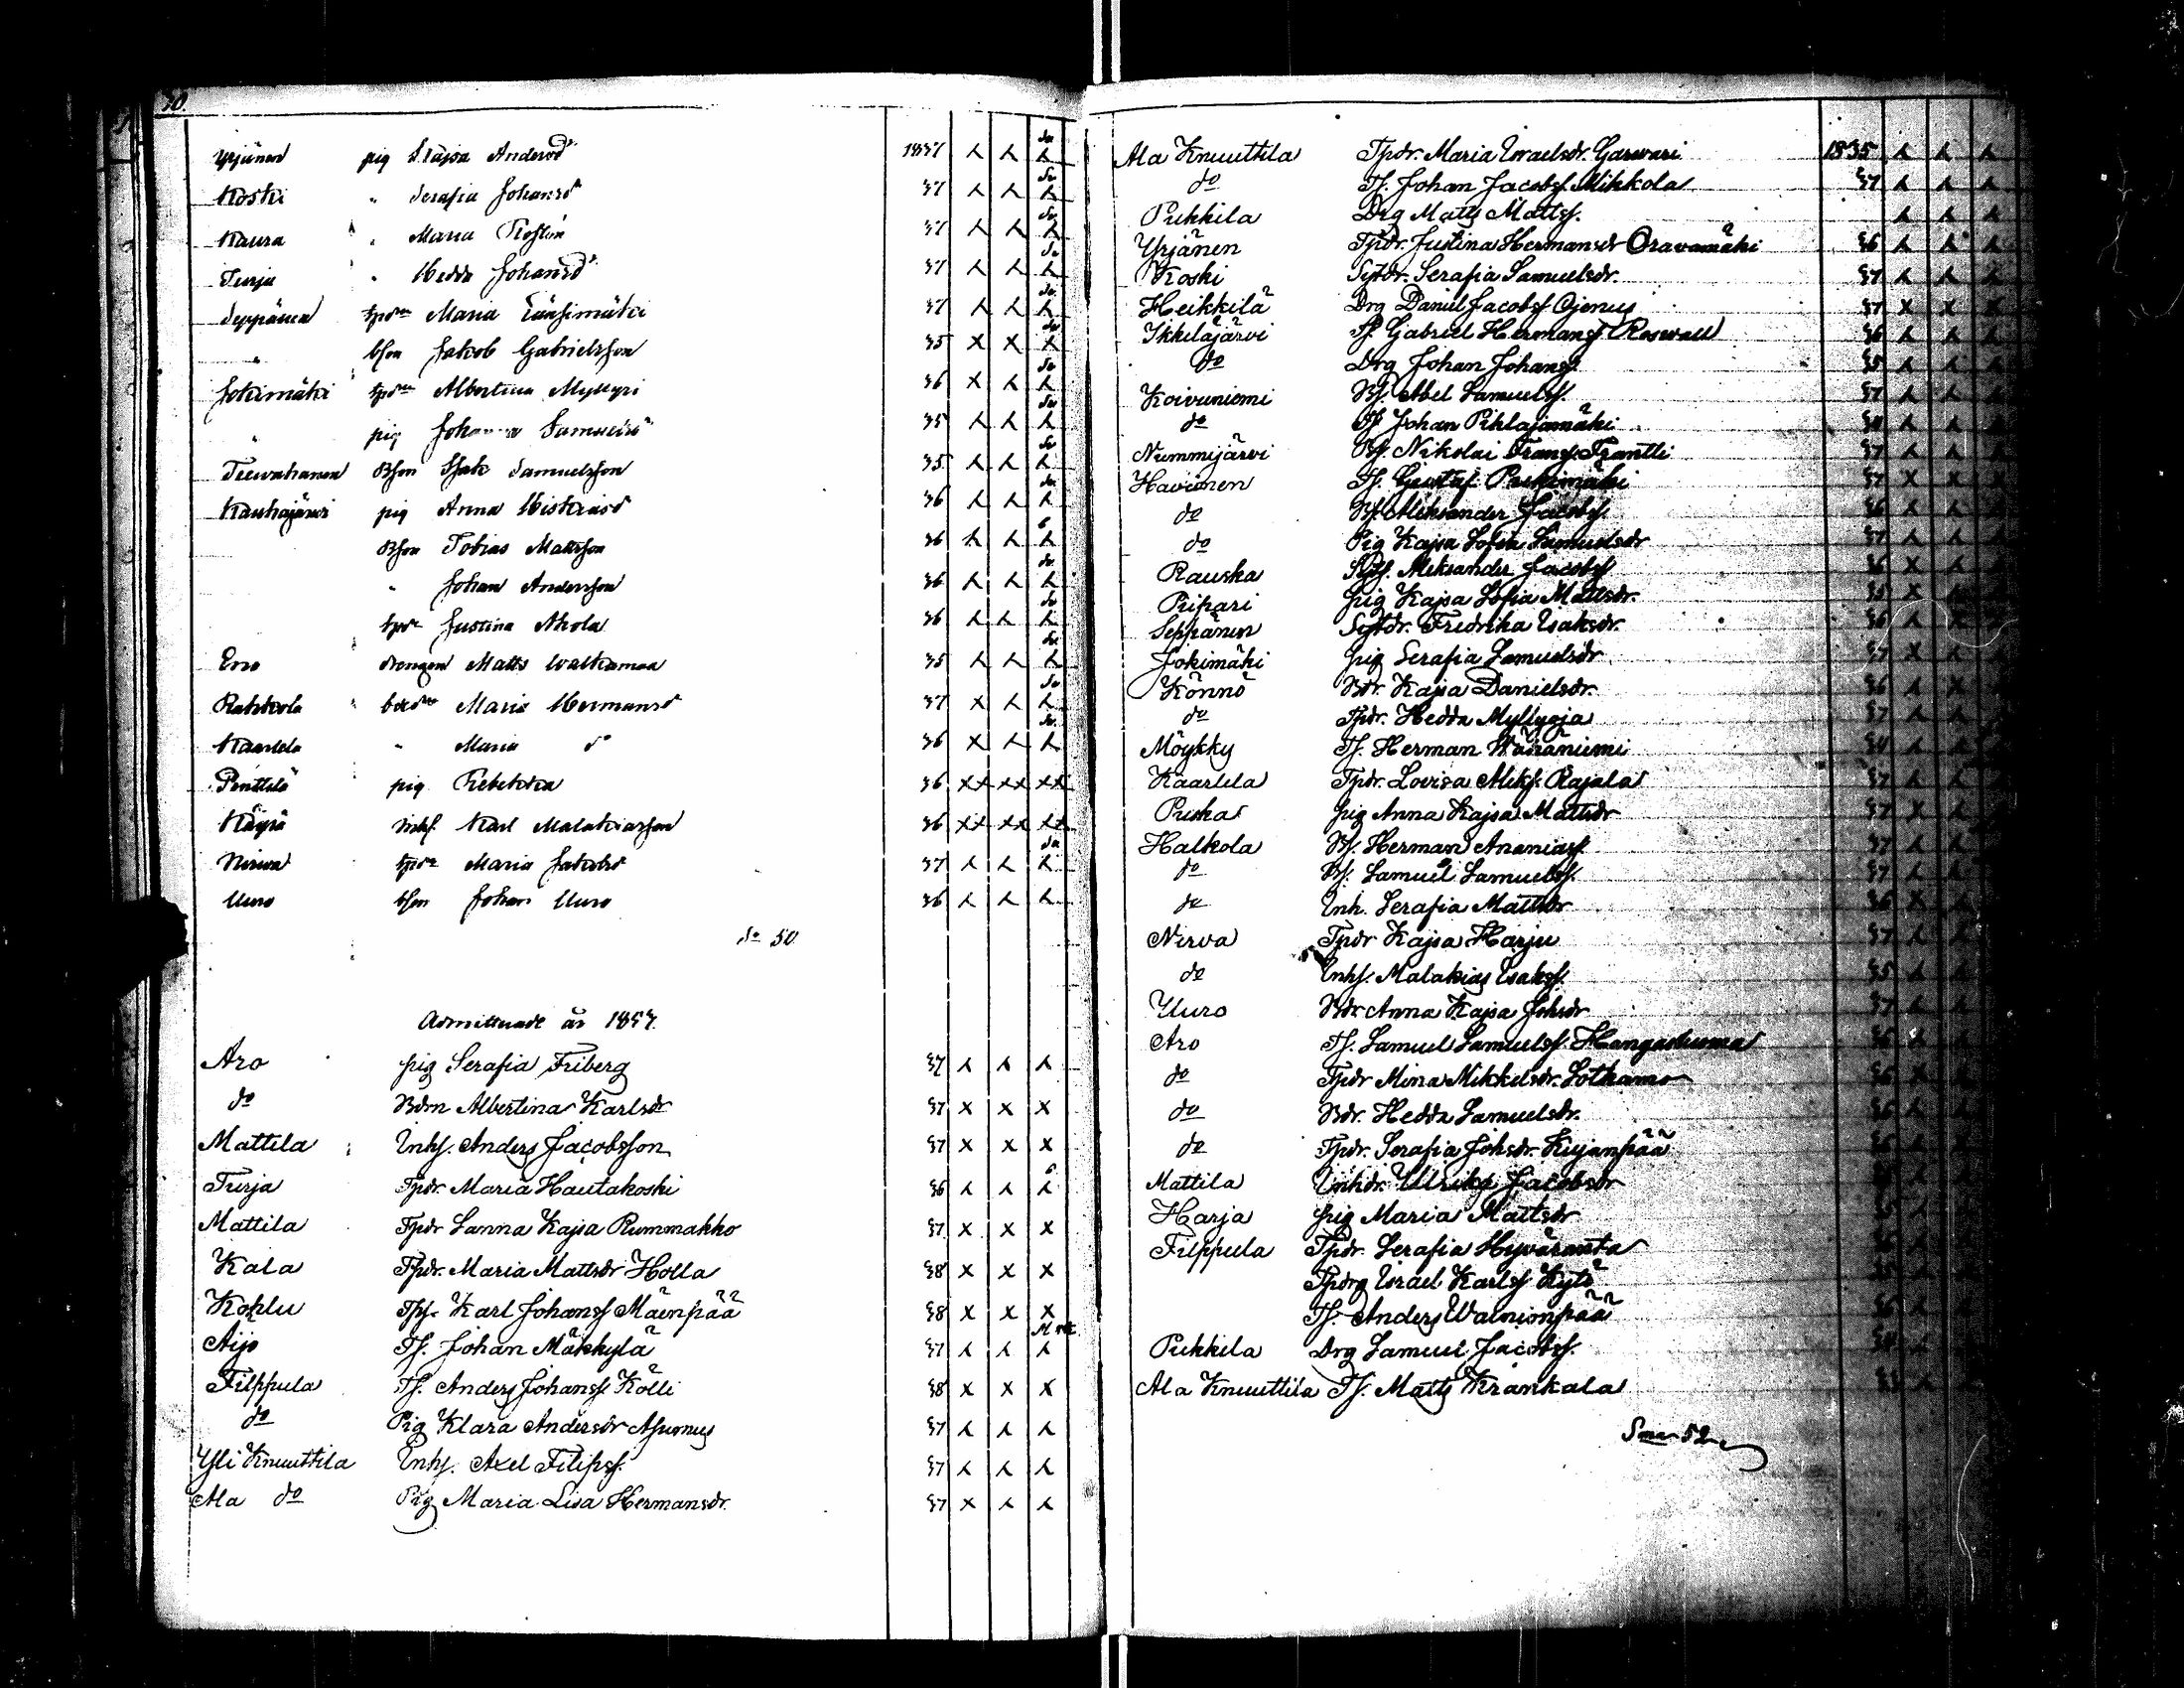 30.
Yrjänen pig Kajsa Andersd 1837
Koski " Serafia Johansd 37
Kaura " Maria 37
Turja " Hedda Johansd 37
Seppänen tpdr Maria Länsimäki 37
" bson Jakob Gabrielsson 35
Jokimäki tpdr Albertina Myllyri 36
" pig Johanna Samuelsd 35
Teevahanen Bson Isak Samuelsson 35
Kauhajärvi pig Anna Miskiasd 36
Bson Tobias Mattsson 36
" Johan Andersson 36
tpdr Justina Ahola 36
Ero drengen Matts Walkamaa 35
Rahkola Maria Hermansd 37
Kaarlela " Maria do 36
Penttilä pig Rebekka 36
Käyrä inhs. Karl Malakiasson 36
Nirva tpdr Maria Jakobsd 37
Uuro bson Johan Uuro 36
Sa 50.
Admitterade år 1857.
Aro pig Serafia Friberg 37
do Bdrn Albertina Karlsdr 37
Mattila Inhs. Anders Jacobsson 37
Turja Tpdr. Maria Hautakoski 36
Mattila Tpdr Sanna Kajsa Rummakko 37
Kala Tpdr. Maria Mattsdr Holla 38
Kohlu Tps. Karl Johanss Mäenpää 38
Äijö Ts. Johan Mäkkylä 37
Filppula Ts. Anders Johanss Kölli 38
do Pig Klara Andersdr Asumus 37
Yli Knuuttila Inhs. Axel Filipss. 37
Ala do Pig Maria Lisa Hermansdr. 37
Ala Knuuttila Tpdr. Maria Israelsdr. Garwari 1835
do Ts. Johan Jacobss. Mikkola 37
Pukkila Drg Matts Mattss.
Yrjänen Tpdr. Justina Hermansdr Oravamäki 36
Koski Sytdr. Serafia Samuelsdr. 37
Heikkilä Drg Daniel Jacobss Ojenus 37
Ikkeläjärvi Ts. Gabriel Hermanss Rosevall 36
do Drg Johan Johanss. 35
Koivuniemi Bs. Abel Samuelss. 37
do Ts Johan Pihlajamäki 34
Nummijärvi Bs. Nikolai Franss. Frantti 37
Havunen Ts. Gustaf Puskimäki 37
do Bs. Aleksander Jacobss. 36
do Pig Kajsa Sofia Samuelsdr 37
Rauska Aleksander Jacobss 36
Pitpari pig Kajsa Sofia Mattsdr. 35
Seppänen Sytdr. Fredrika Isaksdr. 36
Jokimäki pig Serafia Samuelsdr. 37
Könnö Bdr. Kajsa Danielsdr. 36
do Tpdr. Hedda Myllyoja 37
Möykky Ts. Herman Wäkäniemi 34
Kaarlela Tpdr. Lovisa Aleks. Rajala 37
Puska pig Anna Kajsa Mattsdr 37
Halkola Bs. Herman Ananiass. 37
do Bs. Samuel Samuelss. 37
do Inh. Serafia Mattsdr 36
Nirva Tpdr Kajsa Harju 37
do Inhs. Malakias Isakss. 35
Yluro Bdr Anna Kajsa Johsdr 37
Aro Ts. Samuel Samuelss. Hangasluoma 36
do Tpdr Mina Mikkelsdr. Lotkamo 36
do Bdr. Hedda Samuelsdr. 36
do Tpdr. Serafia Johsdr. Kujanpää
Mattila Inhdr. Ulrika Jacobsdr
Harja pig Maria Mattsdr 35
Filppula Tpdr. Serafia Hyväranta
Tpdrg Israel Karlss Kytö
Ts. Anders Walmionpää 36
Pukkila Drg Samuel Jacobss. 34
Ala Knuuttila Ts. Matts Krankala
Sma 52